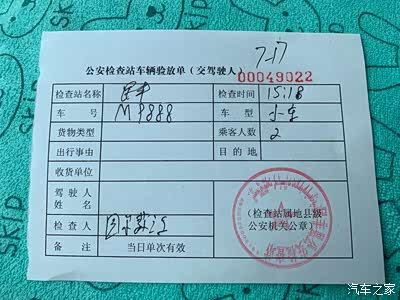 7-17
公安检查站车辆验放单（交驾驶人）
00049022
检查站名称 检查时间 15:18
车号 M9888 车型 小车
货物类型 乘客人数 2
出行事由 目的地
收货单位
驾驶人姓名
（检查站属地县级公安机关公章）
检查人
备注 当日单次有效
SKIP
汽车之家